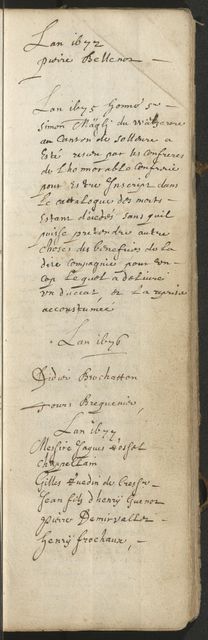 Lan 1672
pierre Bellenot —
Lan 1675 honnor Sr —
Simon Mägli du
au Canton de Solleure a
Esté receu par les confreres
de Lhonnorable Confrerie
pour estre Inscript dans
le catalogue des morts —
Estant décédés sans quil
puisse pretendre autre
choses des benefices de la
dite Compagnie pour son
Lequel a delivré
un ducat, et la reprise
accoustumée
Lan 1676
Didier Bruchatton
Bregueniée,
Lan 1677
Messire Jaques
Chappellain
Gilles de Cressie —
Jean fils dhenrÿ Guenot
pierre
henrÿ frochaux, —